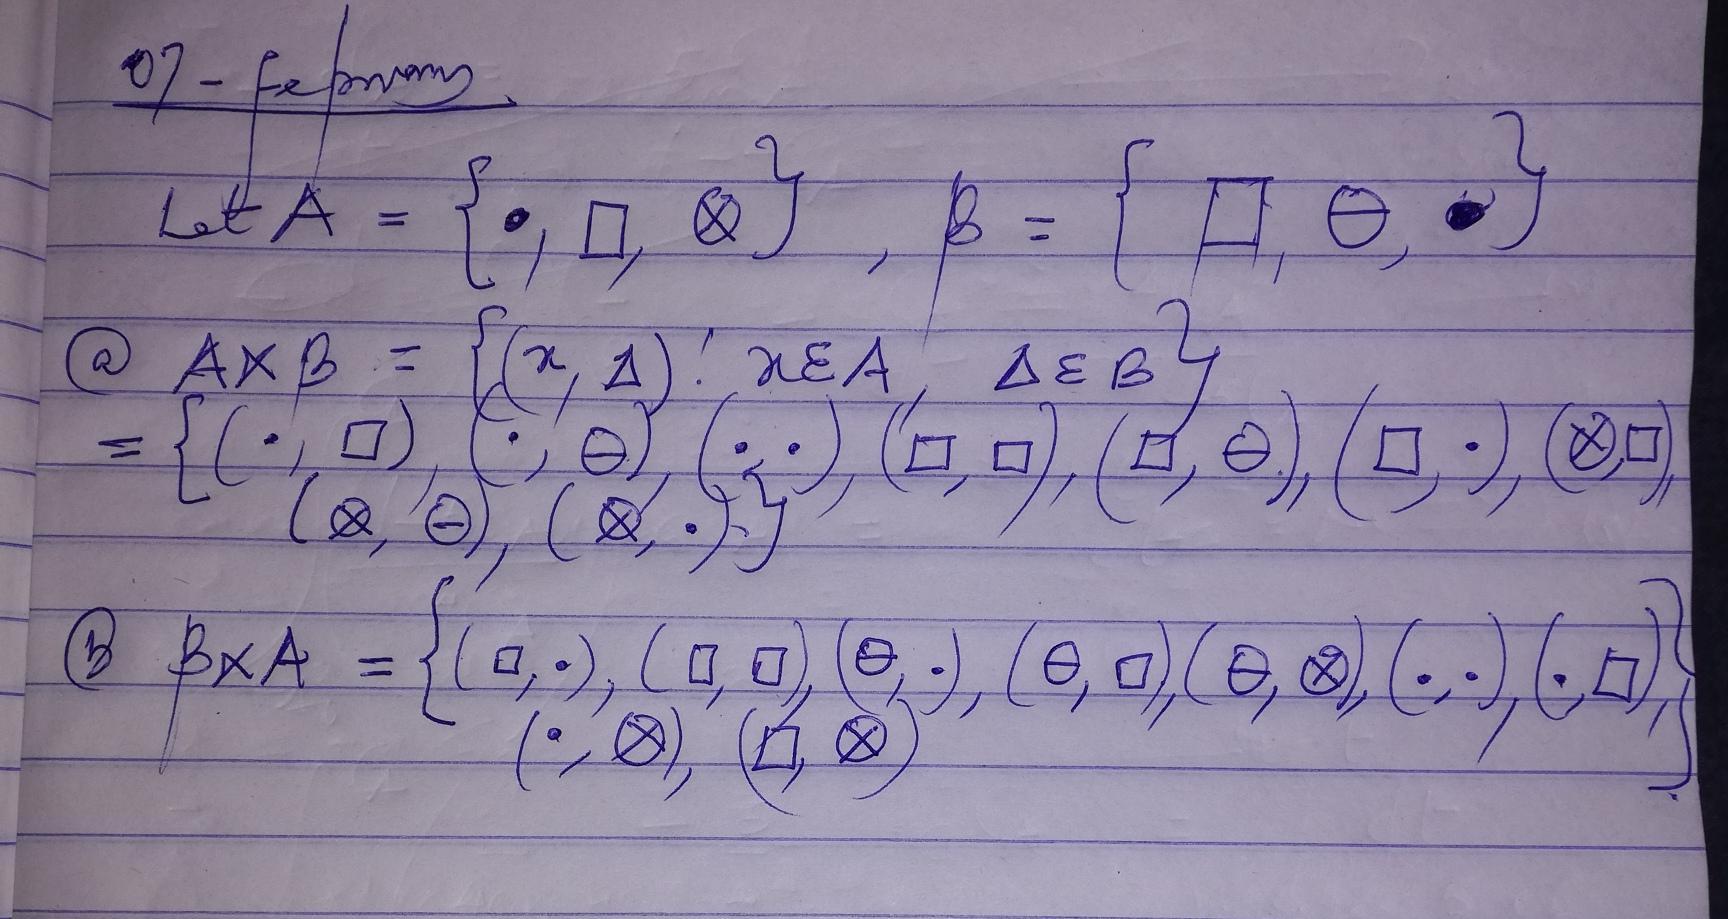 07 - February
Let A = {•, □, ⊗}, B = {□, ⊖, •}
ⓐ A×B = {(x, Δ) : x∈A, Δ∈B}
= {(•, □), (•, ⊖), (•, •), (□, □), (□, ⊖), (□, •), (⊗, □),
(⊗, ⊖), (⊗, •)}
ⓑ B×A = {(□, •), (□, □), (⊖, •), (⊖, □), (⊖, ⊗), (•, •), (•, □),
(•, ⊗), (□, ⊗)}.